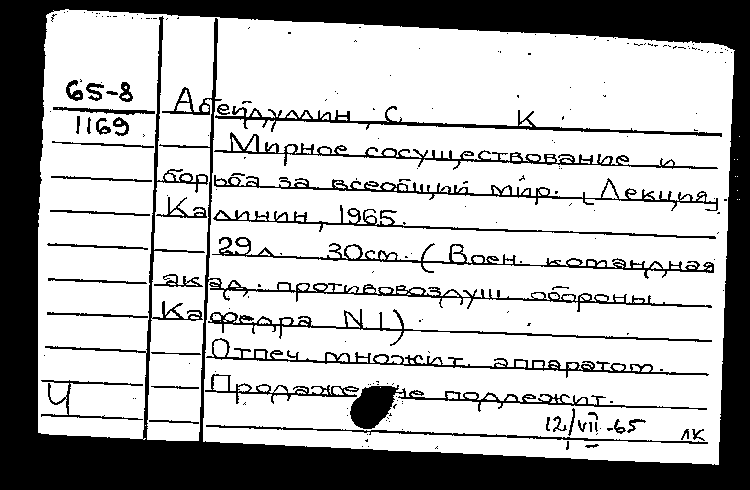 65-8
1169
Абейдуллин, С К
Мирное сосуществование и
борьба за всеобщий мир. [Лекция].
Калинин, 1965.
29 л. 30см. (Воен. командная
акад. противовоздуш. обороны.
Кафедра N 1)
Отпеч. множит. аппаратом.
Продаже не подлежит.
Ч
12/VII-65 лк